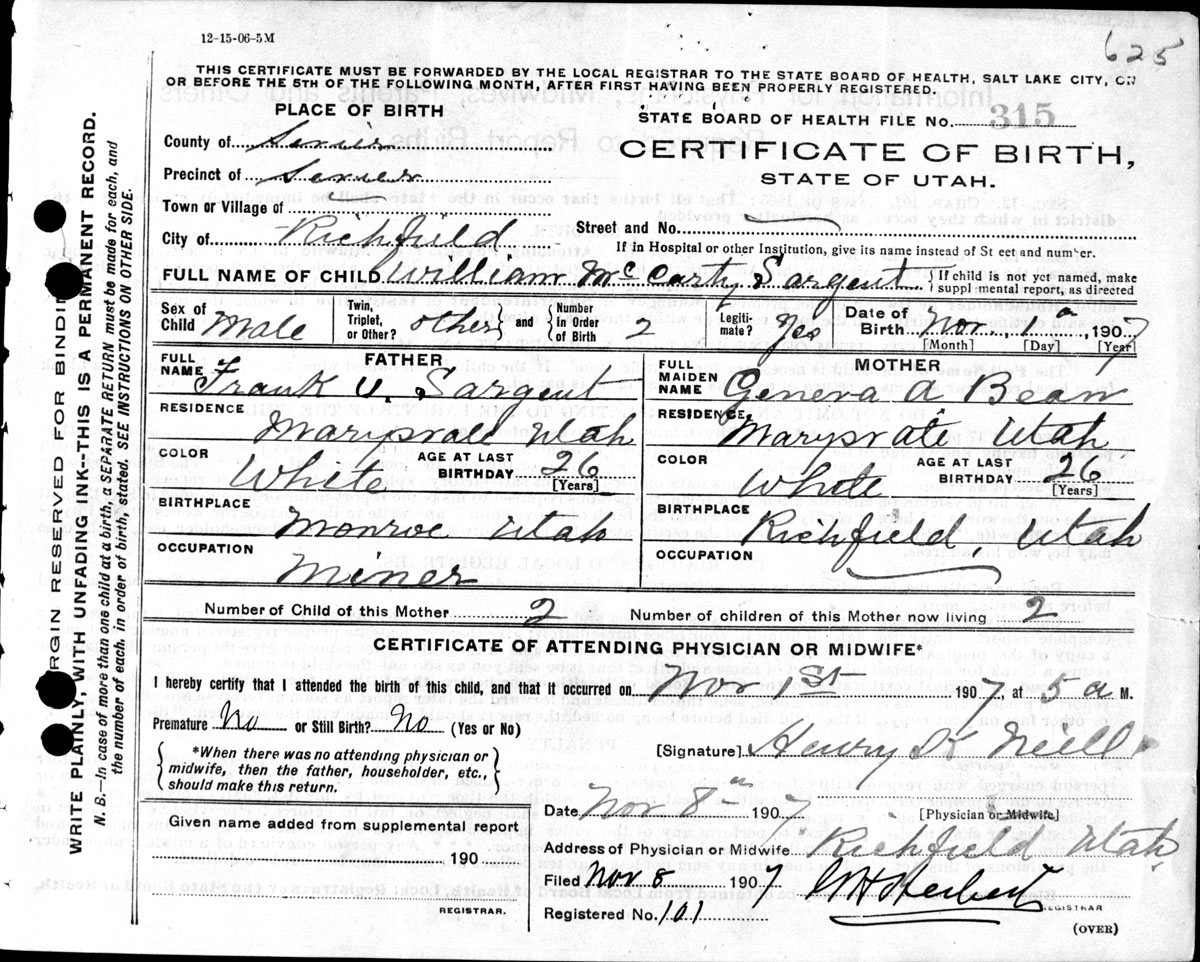 12-15-06-5M
625
THIS CERTIFICATE MUST BE FORWARDED BY THE LOCAL REGISTRAR TO THE STATE BOARD OF HEALTH, SALT LAKE CITY, ON
OR BEFORE THE 5TH OF THE FOLLOWING MONTH, AFTER FIRST HAVING BEEN PROPERLY REGISTERED.
PLACE OF BIRTH
County of Sevier
Precinct of Sevier
Town or Village of
City of Richfield
STATE BOARD OF HEALTH FILE No. 315
CERTIFICATE OF BIRTH,
STATE OF UTAH.
Street and No.
If in Hospital or other Institution, give its name instead of St eet and number.
FULL NAME OF CHILD William McCarty Sargent { If child is not yet named, make
suppl mental report, as directed
Sex of Child Male Twin, Triplet, or Other? other } and { Number in Order of Birth 2 Legiti-mate? Yes Date of Birth Nov., 1st, 1907
[Month] [Day] [Year]
FATHER
FULL NAME Frank V. Sargent
RESIDENCE
Marysvale Utah
COLOR White AGE AT LAST BIRTHDAY 26
[Years]
BIRTHPLACE
Monroe Utah
OCCUPATION
Miner
MOTHER
FULL MAIDEN NAME Geneva A Bean
RESIDENCE
Marysvale, Utah
COLOR White AGE AT LAST BIRTHDAY 26
[Years]
BIRTHPLACE
Richfield, Utah
OCCUPATION
Number of Child of this Mother 2 Number of children of this Mother now living 2
CERTIFICATE OF ATTENDING PHYSICIAN OR MIDWIFE*
I hereby certify that I attended the birth of this child, and that it occurred on Nov 1st 1907, at 5 a M.
Premature No or Still Birth? No (Yes or No)
{ *When there was no attending physician or
midwife, then the father, householder, etc.,
should make this return. }
[Signature] Henry K Neill
Date Nov 8th 1907 [Physician or Midwife]
Given name added from supplemental report
190
REGISTRAR.
Address of Physician or Midwife Richfield Utah
Filed Nov 8 1907
REGISTRAR
Registered No. 101
(OVER)
MARGIN RESERVED FOR BINDING
WRITE PLAINLY, WITH UNFADING INK—THIS IS A PERMANENT RECORD.
N. B.—In case of more than one child at a birth, a SEPARATE RETURN must be made for each, and
the number of each, in order of birth, stated. SEE INSTRUCTIONS ON OTHER SIDE.